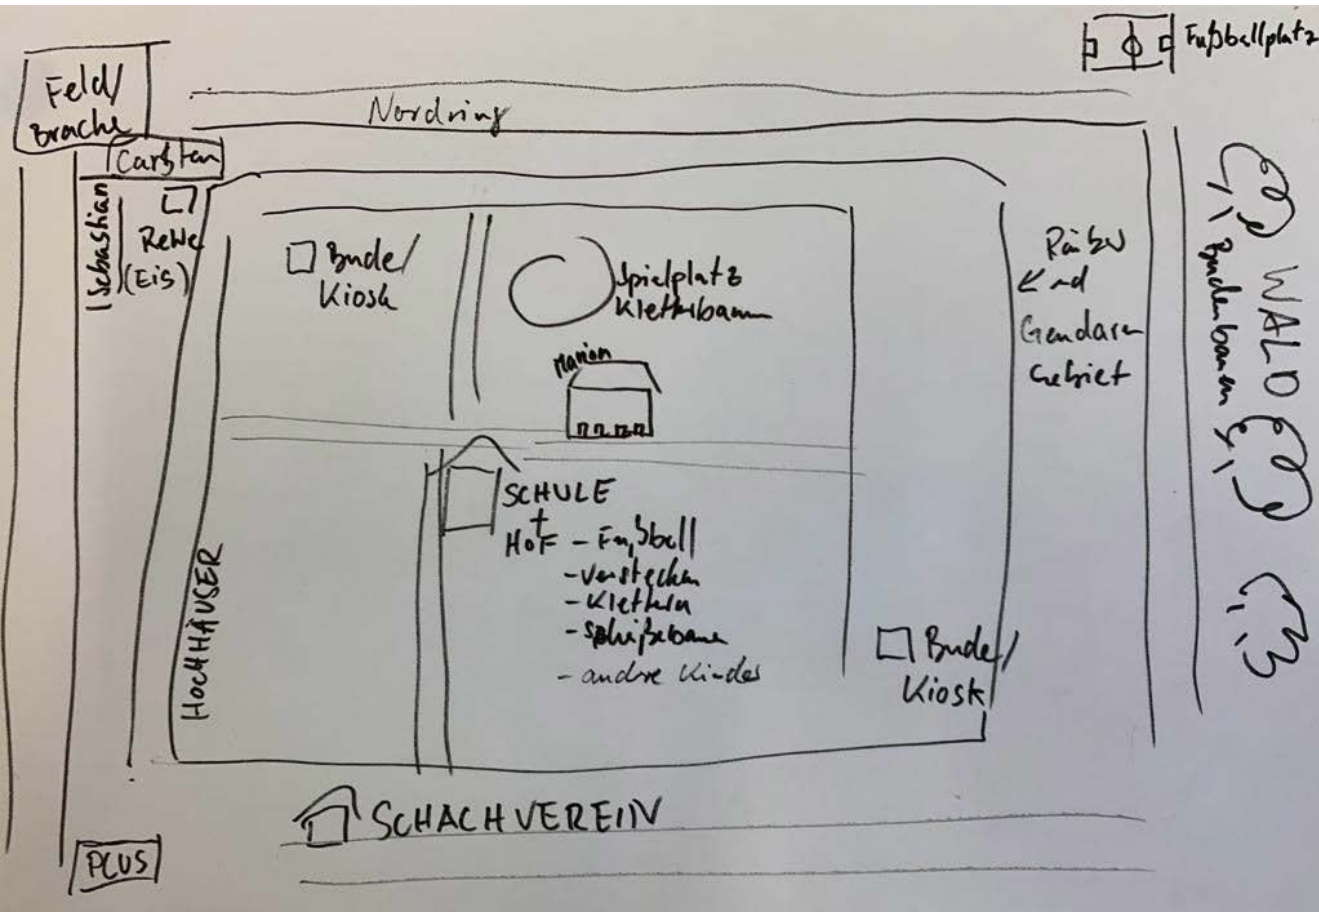 Fußballplatz
Feld/
Brache
Nordring
Carsten
Sebastian
ReWe
(Eis)
Bude/
Kiosk
Spielplatz
Kletterbaum
Marion
Räuber
und
Gendarm
Gebiet
WALD
Budenbauen
SCHULE
+
HoF - Fußball
- Verstecken
- Klettern
- andere Kinder
HOCHHÄUSER
Bude/
Kiosk
SCHACHVEREIN
PLUS